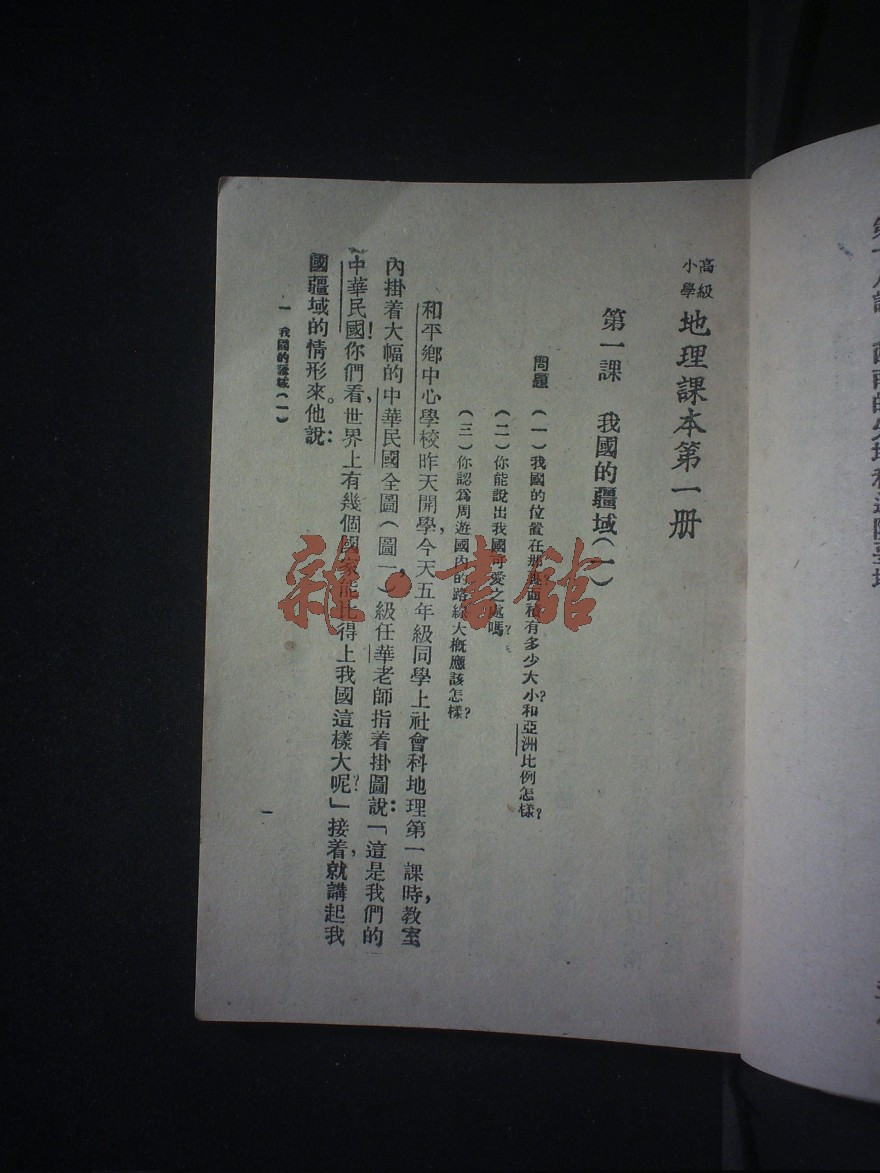 高級
小學
地理課本第一册
第一課　我國的疆域(一)
問題　(一)我國的位置在那裏面積有多少大小?和亞洲比例怎樣?
(二)你能說出我國可愛之處嗎?
(三)你認爲周遊國內的路線大概應該怎樣?
和平鄉中心學校昨天開學,今天五年級同學上社會科地理第一課時,教室
內掛着大幅的中華民國全圖(圖一),級任華老師指着掛圖說:「這是我們的
中華民國!你們看,世界上有幾個國家能比得上我國這樣大呢?」接着,就講起我
國疆域的情形來。他說:
一　我國的疆域(一)
一
雜·書館